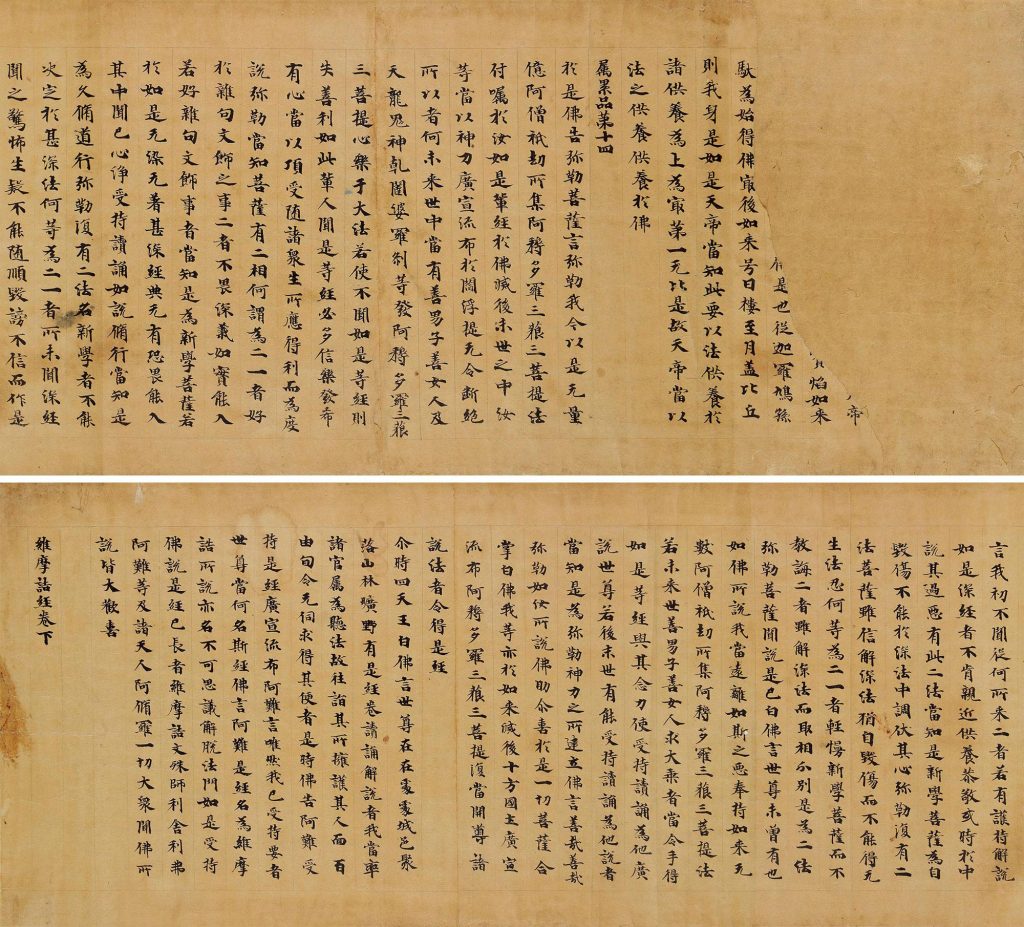 帝
焰如来
是也從迦羅鳩孫
馱為始得佛㝡後如来号曰樓至月盖比丘
則我身是如是天帝當知此要以法供養於
諸供養為上為㝡第一无比是故天帝當以
法之供養供養於佛
属累品第十四
於是佛告弥勒菩薩言弥勒我今以是无量
億阿僧祇劫所集阿耨多羅三藐三菩提法
付嘱於汝如是輩經於佛滅後末世之中汝
等當以神力廣宣流布於閻浮提无令断絶
所以者何未来世中當有善男子善女人及
天龍鬼神乹闥婆羅刹等發阿耨多羅三藐
三菩提心樂于大法若使不聞如是等經則
失善利如此輩人聞是等經必多信樂發希
有心當以頂受随諸衆生所應得利而為廣
說弥勒當知菩薩有二相何謂為二一者好
於雜句文飾之事二者不畏深義如實能入
若好雜句文飾事者當知是為新學菩薩若
於如是无染无著甚深經典无有恐畏能入
其中聞已心淨受持讀誦如說脩行當知是
為久脩道行弥勒復有二法名新學者不能
决定於甚深法何等為二一者所未聞深經
聞之驚怖生疑不能随順毀謗不信而作是
言我初不聞從何所来二者若有護持解說
如是深經者不肯親近供養恭敬或時於中
說其過惡有此二法當知是新學菩薩為自
毀傷不能於深法中調伏其心弥勒復有二
法菩薩雖信解深法猶自毀傷而不能得无
生法忍何等為二一者輕慢新學菩薩而不
教誨二者雖解深法而取相分別是為二法
弥勒菩薩聞說是已白佛言世尊未曾有也
如佛所說我當遠離如斯之惡奉持如来无
數阿僧祇劫所集阿耨多羅三藐三菩提法
若未来世善男子善女人求大乘者當令手得
如是等經與其念力使受持讀誦為他廣
說世尊若後末世有能受持讀誦為他說者
當知是為弥勒神力之所建立佛言善哉善哉
弥勒如汝所說佛助尒喜於是一切菩薩合
掌白佛我等亦於如来滅後十方國土廣宣
流布阿耨多羅三藐三菩提復當開導諸
說法者令得是經
尒時四天王白佛言世尊在在處處城邑聚
落山林曠野有是經卷讀誦解說者我當率
諸官属為聽法故往詣其所擁護其人面百
由旬令无伺求得其便者是時佛告阿難受
持是經廣宣流布阿難言唯然我已受持要者
世尊當何名斯經佛言阿難是經名為維摩
詰所說亦名不可思議解脫法門如是受持
佛說是經已長者維摩詰文殊師利舍利弗
阿難等及諸天人阿脩羅一切大衆聞佛所
說皆大歡喜
維摩詰經卷下